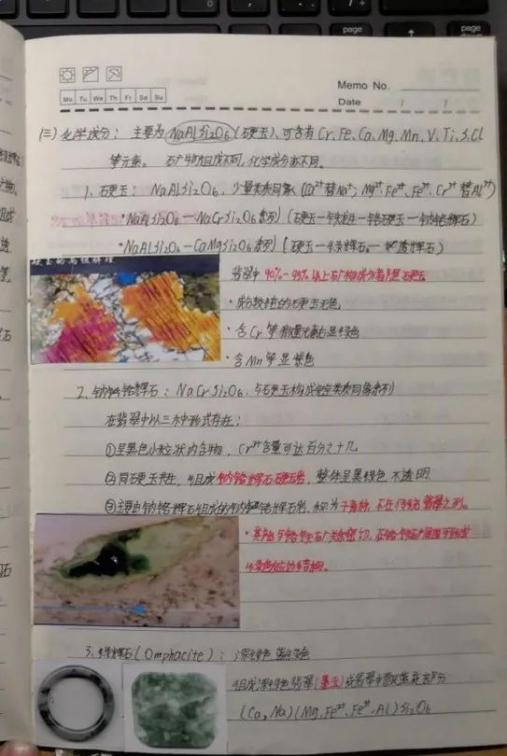 page
page
Memo No.
Mo Tu We Th Fr Sa Su
Date / /
(三) 化学成分: 主要为 NaAlSi₂O₆ (硬玉), 可含有 Cr, Fe, Ca, Mg, Mn, V, Ti, S, Cl
等元素。 矿物组成不同, 化学成分亦不同。
1. 硬玉: NaAlSi₂O₆, 少量类质同象 (Ca²⁺替Na⁺; Mg²⁺, Fe²⁺, Fe³⁺, Cr³⁺替Al³⁺)
•NaAlSi₂O₆—NaCrSi₂O₆系列 (硬玉—
•NaAlSi₂O₆—CaMgSi₂O₆系列 (硬玉—绿辉石—透辉石)
翡翠中90%-95%以上矿物成分都是硬玉
•成分较纯的硬玉无色
•含Cr等微量元素呈绿色
•含Mn等呈紫色
2. 钠铬辉石: NaCrSi₂O₆, 与硬玉构成完全类质同象系列
在翡翠中以三种形式存在:
①呈黑色小粒状内含物, Cr³⁺含量可达百分之十几
②同硬玉共生, 组成钠铬辉石硬玉岩, 整体呈黑绿色 不透明
③主要由钠铬辉石组成的钠铬辉石岩, 称为干青种, 不在传统翡翠之列。
3. 绿辉石 (Omphacite): 深绿色 蓝绿色
组成深绿色翡翠 (墨玉) 或翡翠中
(Ca, Na) (Mg, Fe²⁺, Fe³⁺, Al) Si₂O₆